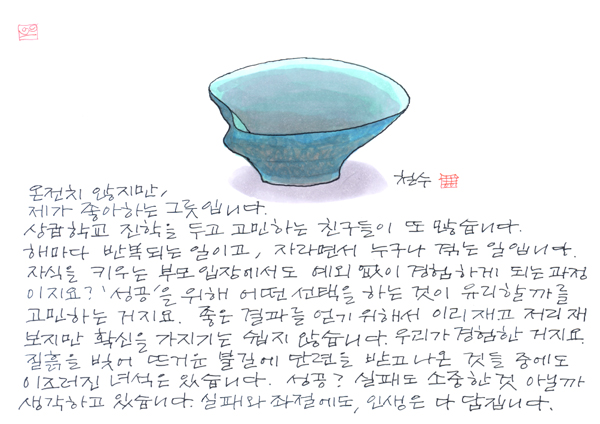 철수
온전치 않지만,
제가 좋아하는 그릇입니다.
상급학교 진학을 두고 고민하는 친구들이 또 많습니다.
해마다 반복되는 일이고, 자라면서 누구나 겪는 일입니다.
자식을 키우는 부모 입장에서도 예외 없이 경험하게 되는 과정
이지요? '성공'을 위해 어떤 선택을 하는 것이 유리할까를
고민하는 거지요. 좋은 결과를 얻기 위해서 이리 재고 저리 재
보지만 확신을 가지기는 쉽지 않습니다. 우리가 경험한 거지요.
질흙을 빚어 뜨거운 불길에 단련을 받고 나온 것들 중에도
이즈러진 녀석은 있습니다. 성공? 실패도 소중한 것 아닐까
생각하고 있습니다. 실패와 좌절에도, 인생은 다 담깁니다.